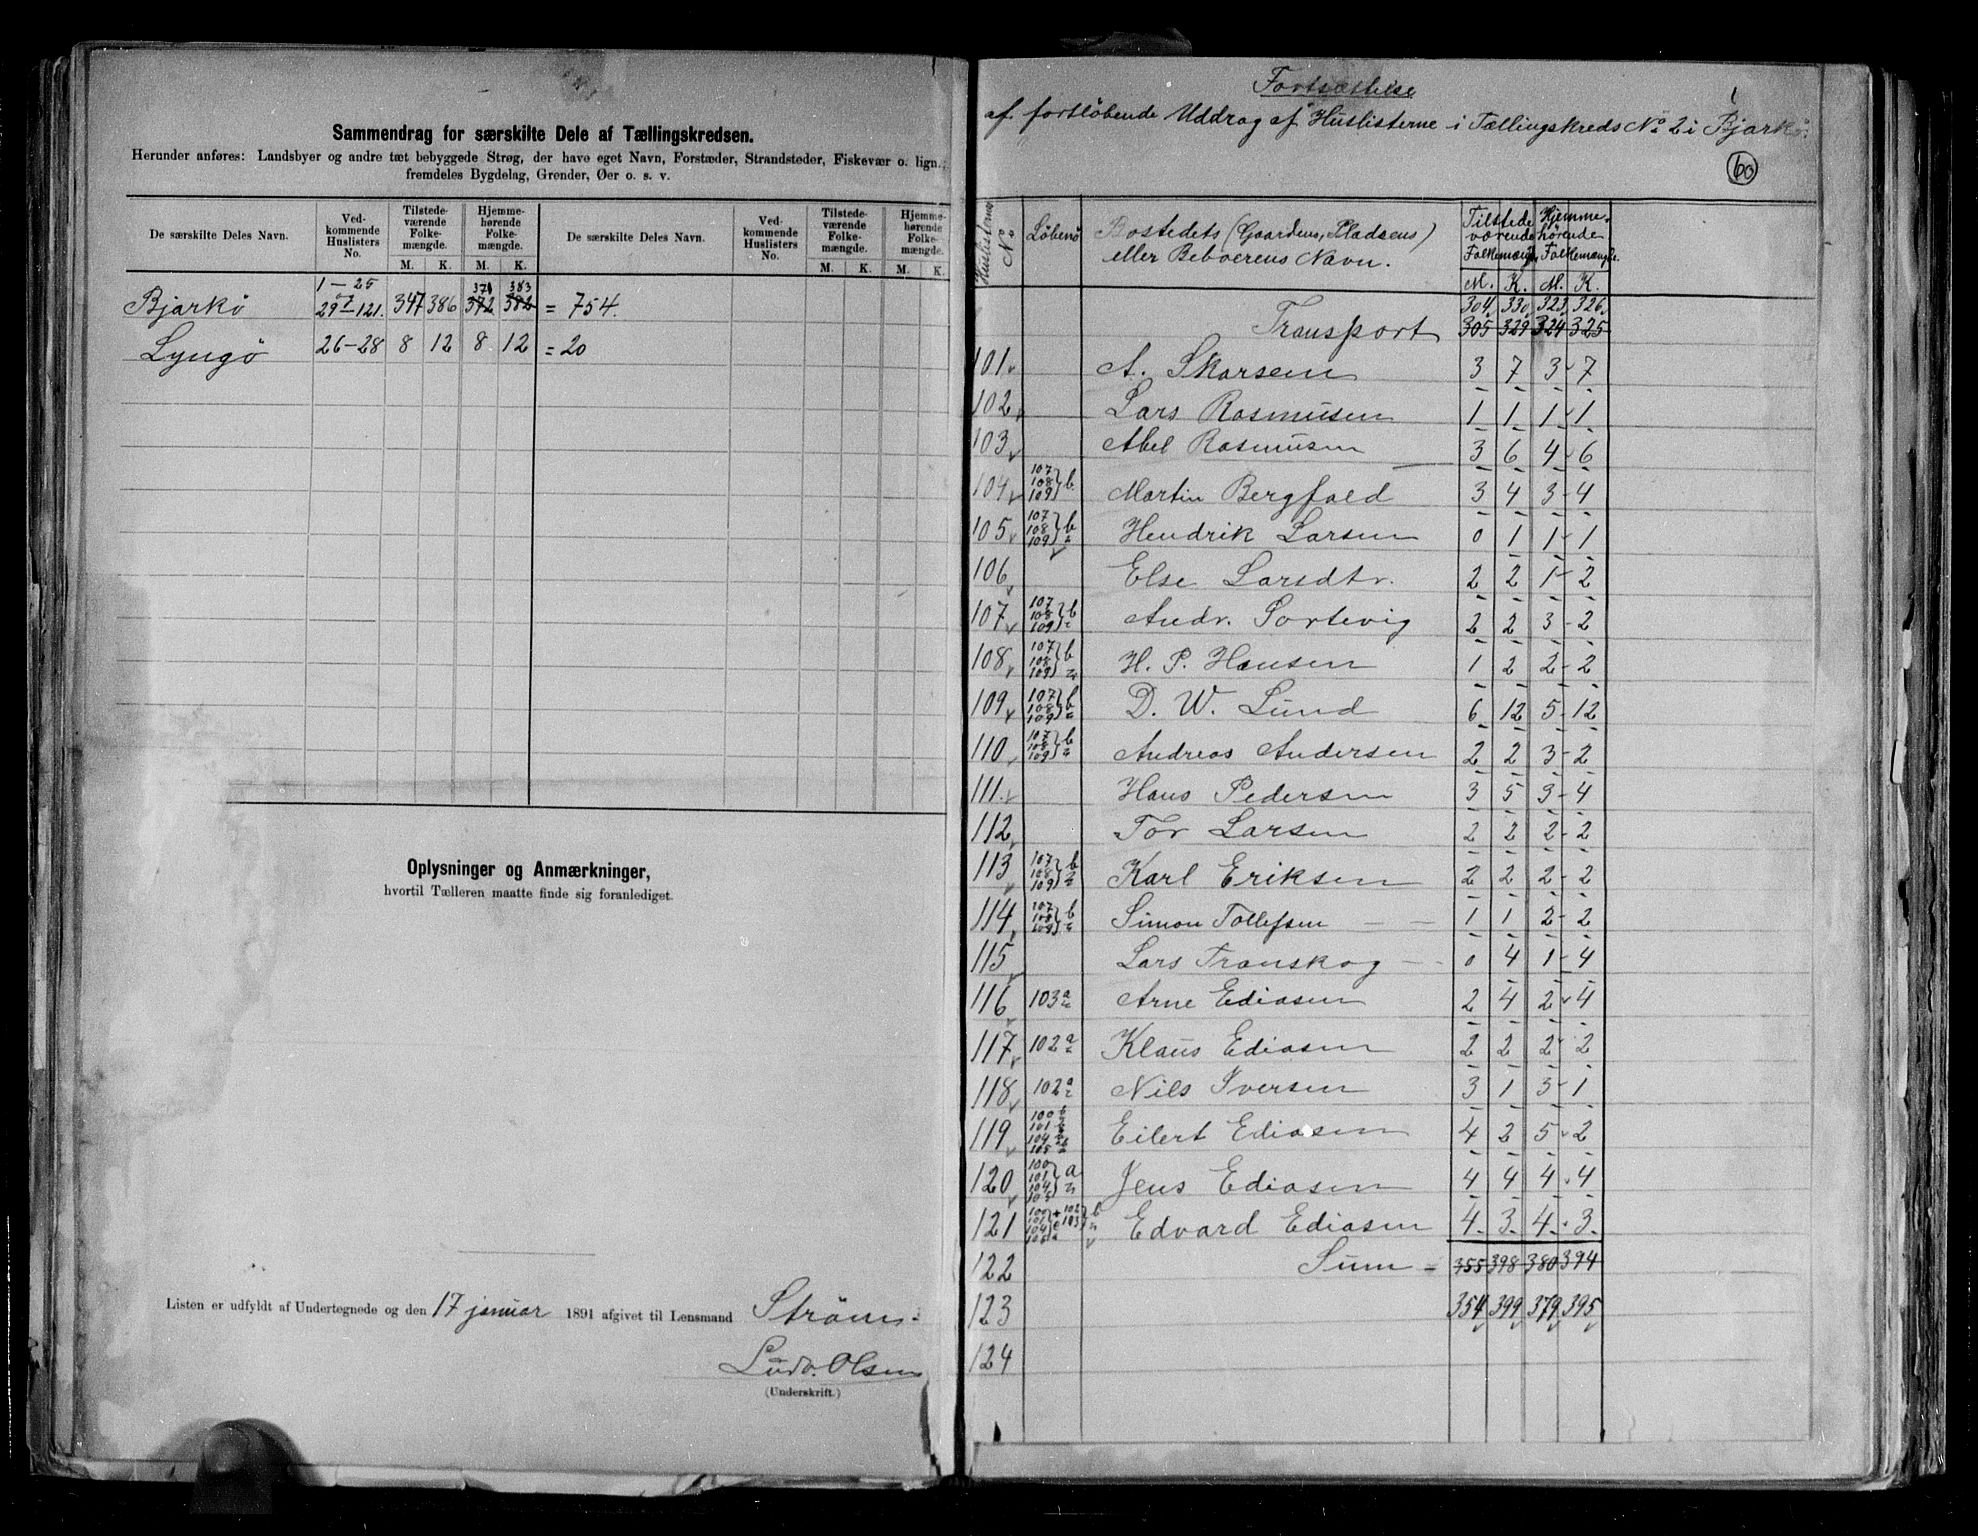 Sammendrag for særskilte Dele af Tællingskredsen.
Herunder anføres: Landsbyer og andre tæt bebyggede Strøg, der have eget Navn, Forstæder, Strandsteder, Fiskevær o. lign.;
fremdeles Bygdelag, Grender, Øer o. s. v.
De særskilte Deles Navn. Ved-kommende Huslisters No. Tilstede-værende Folke-mængde. Hjemme-hørende Folke-mængde. De særskilte Deles Navn. Ved-kommende Huslisters No. Tilstede-værende Folke-mængde. Hjemme-hørende Folke-mængde.
M. K. M. K. M. K. M. K.
1 — 25 371 383
Bjarkö 29 — 121. 347 386 372 382 = 754.
Lyngö 26 — 28 8 12 8 12 = 20
Oplysninger og Anmærkninger,
hvortil Tælleren maatte finde sig foranlediget.
Listen er udfyldt af Undertegnede og den 17 januar 1891 afgivet til Lensmand Ström.
Ludv. Olsen
(Underskrift.)
Fortsættelse
af fortlöbende Uddrag af Huslisterne i Tællingskreds No 2 i Bjarkö.
60
Huslisternes No Löbeno Bostedets (Gaardens, Pladsens) eller Beboerens Navn. Tilstedeværende Folkemængde. Hjemmehörende Folkemængde.
M. K. M. K.
304. 330. 323. 326.
Transport 305 329 324 325
101 A. Skarsem 3 7 3 - 7
102 Lars Rasmusen 1 1 1 - 1
103 Abel Rasmusen 3 6 4 - 6
104 107 108 109 b Martin Bergfald 3 4 3 - 4
105 107 108 109 b Hendrik Larsen 0 1 1 - 1
106 Else Larsdtr. 2 2 1 - 2
107 107 108 109 b Andr. Sortevig 2 2 3 - 2
108 107 108 109 b H. P. Hansen 1 2 2 - 2
109 107 108 109 b D. W. Lund 6 12 5 - 12
110 107 108 109 b Andreas Andersen 2 2 3 - 2
111. Hans Pedersen 3 5 3 - 4
112 Tor Larsen 2 2 2 - 2
113 107 108 109 b Karl Eriksen 2 2 2 - 2
114 107 108 109 b Simon Tollefsen 1 1 2 - 2
115 Lars Transkog 0 4 1 - 4
116 103 a Arne Ediasen 2 4 2 - 4
117 102 a Klaus Ediasen 2 2 2 - 2
118 102 a Nils Iversen 3 1 3 - 1
119 100 101 104 105 Eilert Ediasen 4 2 5 - 2
120 100 101 104 105 a Jens Ediasen 4 4 4 - 4
121 100 101 104 105 + 102 103 b Edvard Ediasen 4. 3. 4. 3.
122 Sum - 355 398 380 394
123 354 399 379 395
124